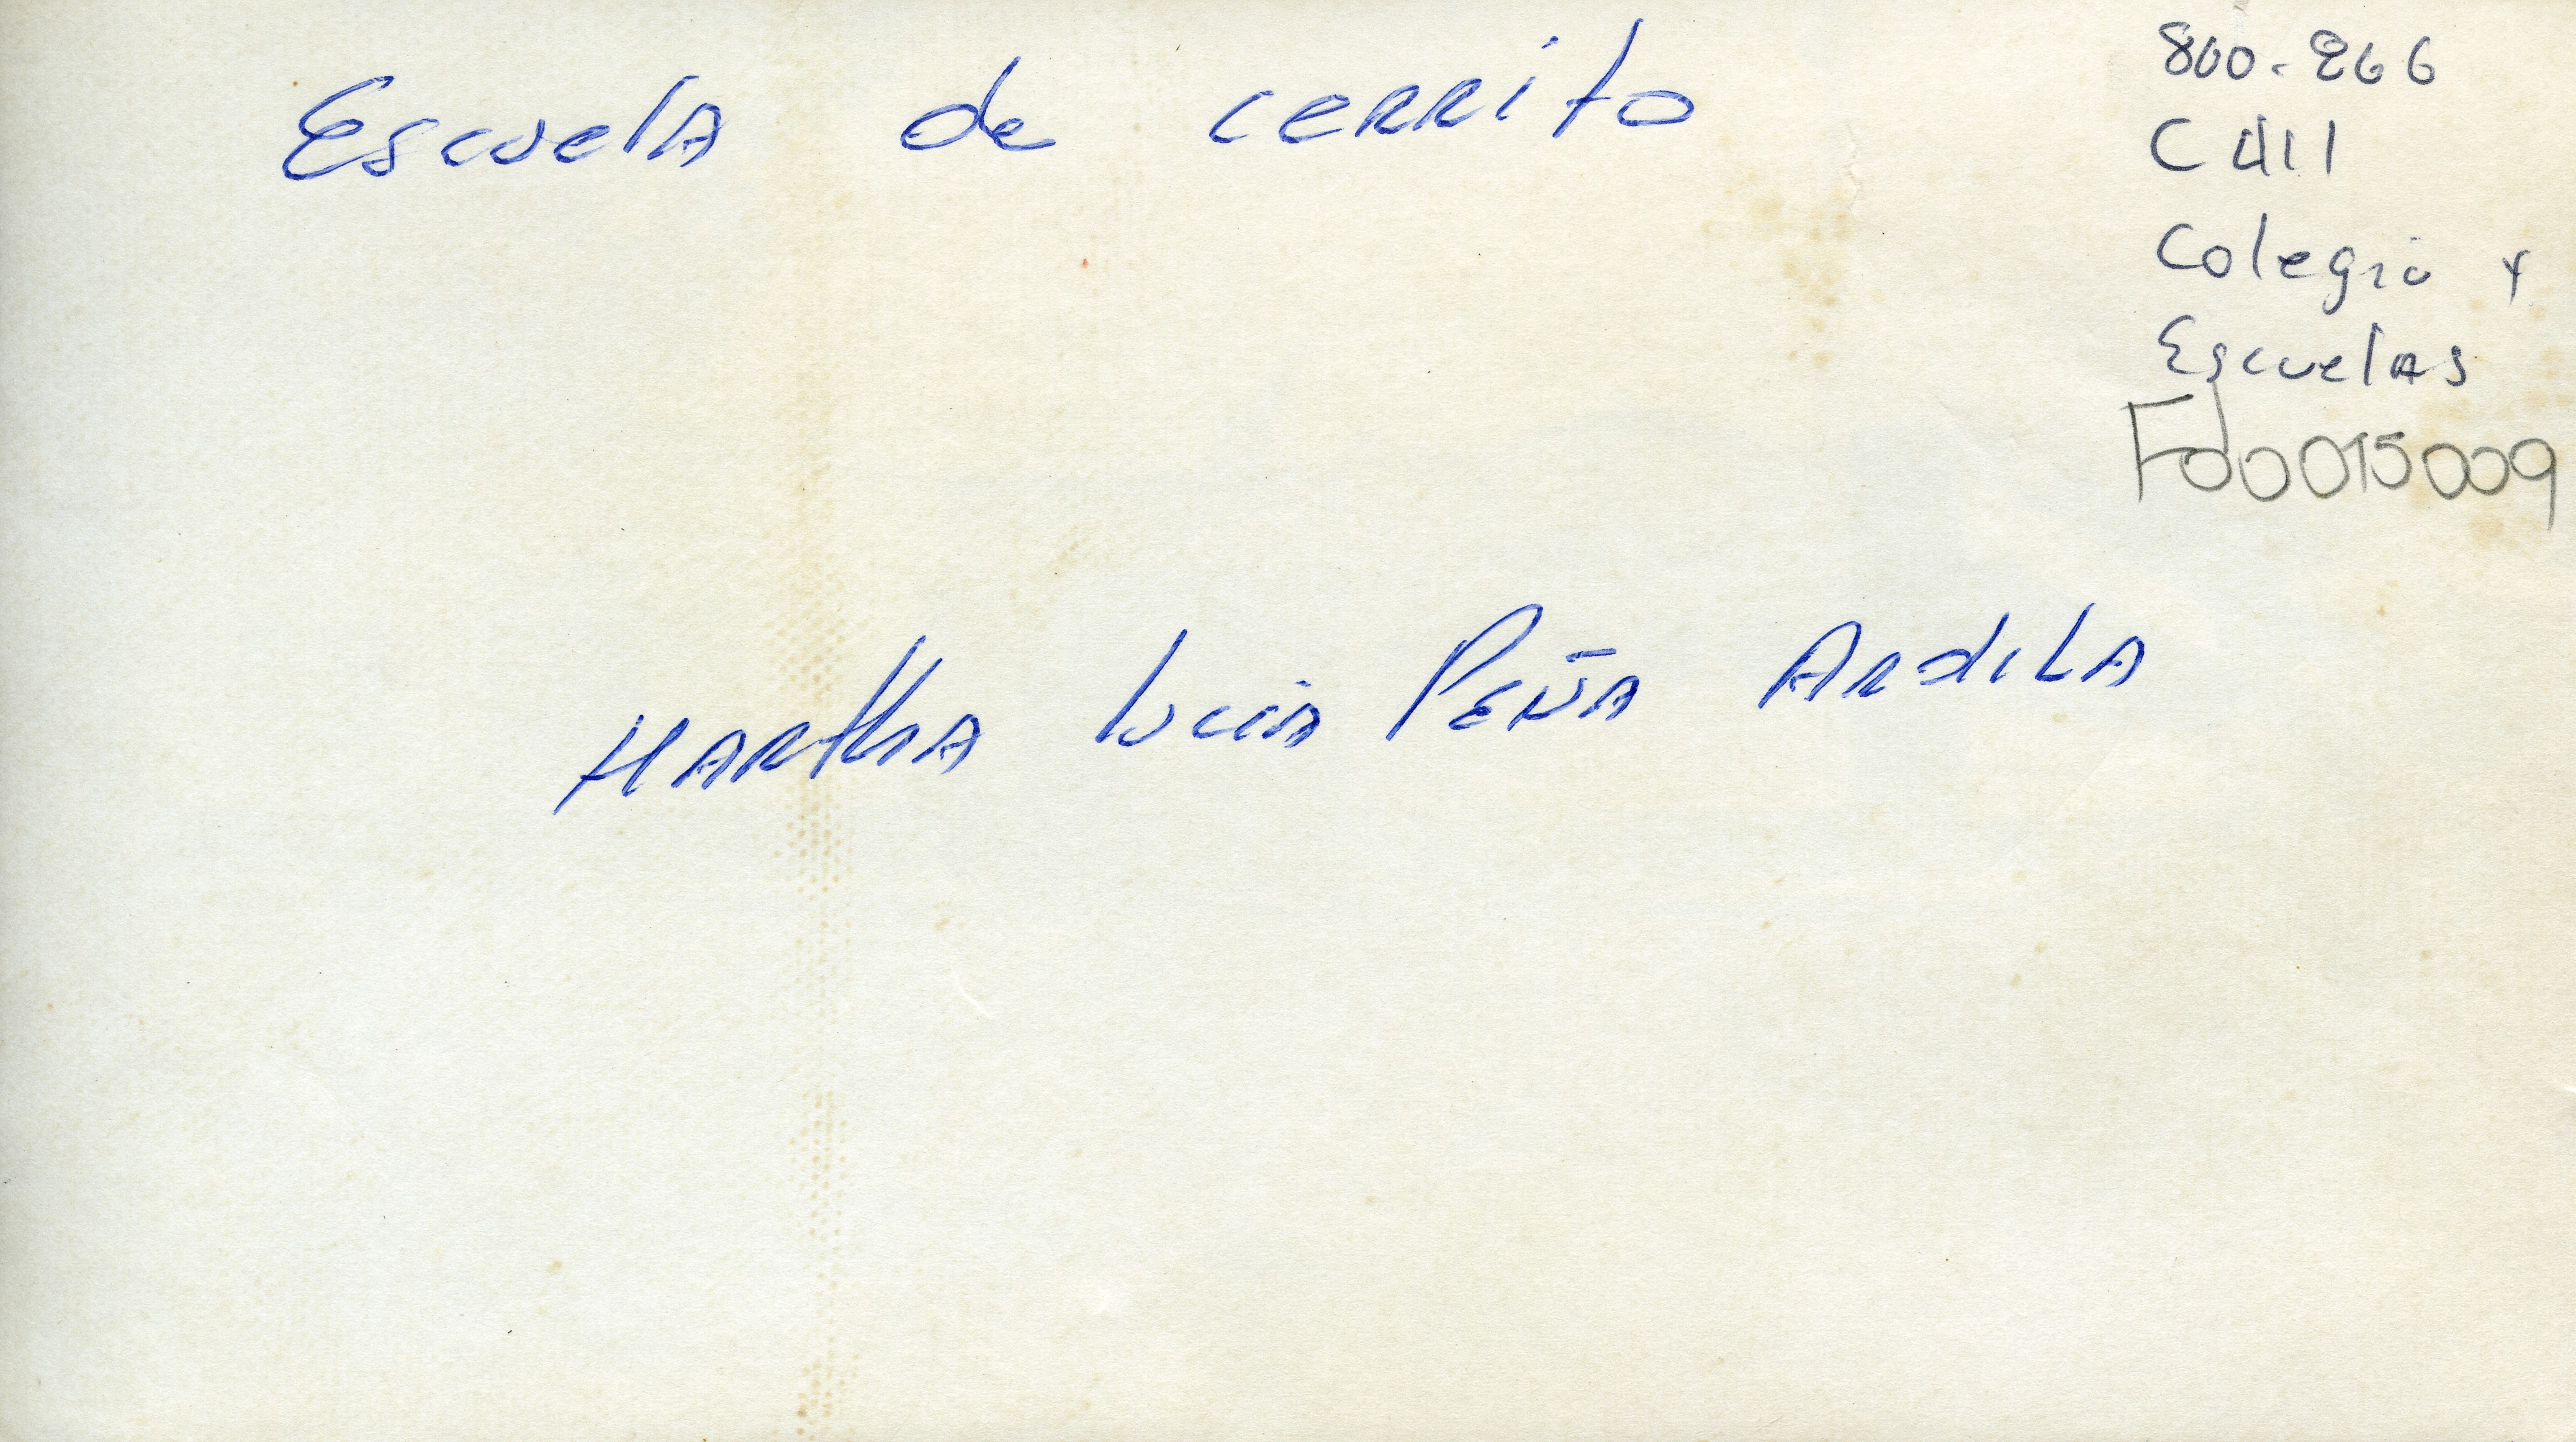 Escuela de cerrito
800.266
C 411
Colegio y
Escuelas
Fd0015009
Martha Lucia Peña Ardila